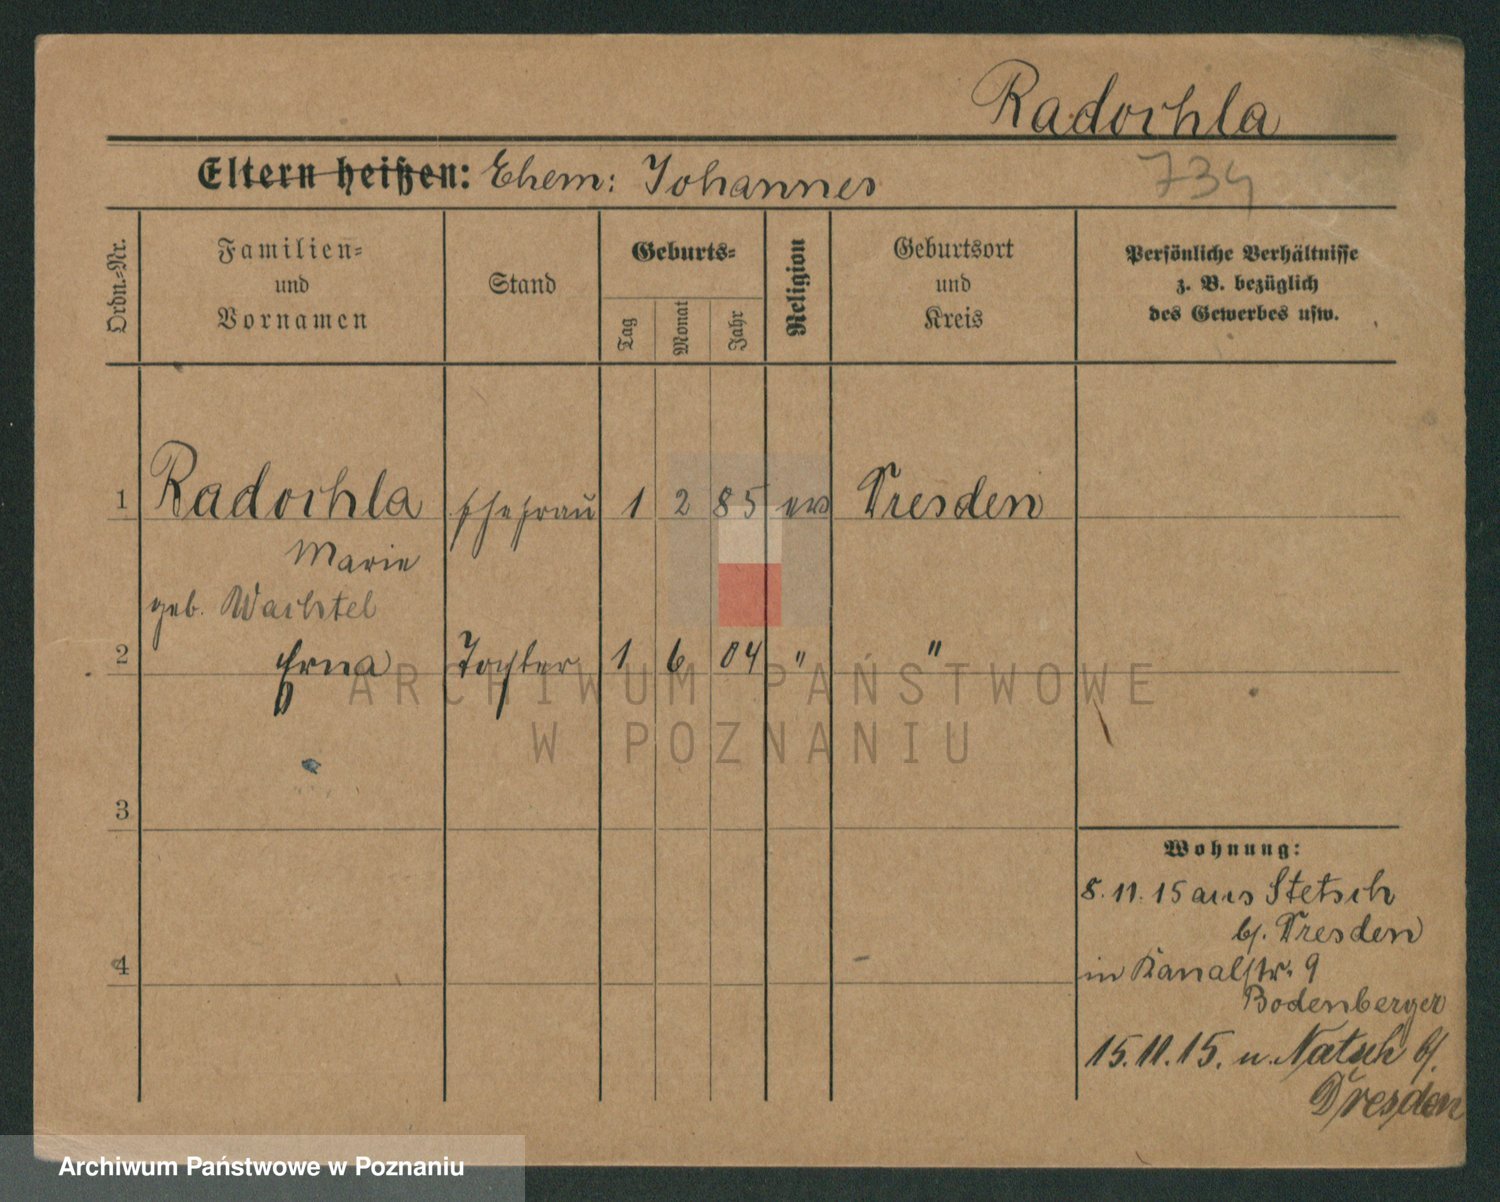 Radochla
Eltern heißen: Ehem: Johannes
734
Ordn.=Nr.
Familien=
und
Vornamen
Stand
Geburts=
Tag
Monat
Jahr
Religion
Geburtsort
und
Kreis
Persönliche Verhältnisse
z. B. bezüglich
des Gewerbes usw.
1 Radochla Ehefrau 1 2 85 ev Dresden
Marie
geb. Wachtel
2 Erna Tochter 1 6 04 " "
ARCHIWUM PAŃSTWOWE
W POZNANIU
3
4
Wohnung:
8.11.15 aus Stetsch
b/. Dresden
in Kanalstr. 9
Bodenberger
15.11.15. n. b/.
Dresden
Archiwum Państwowe w Poznaniu